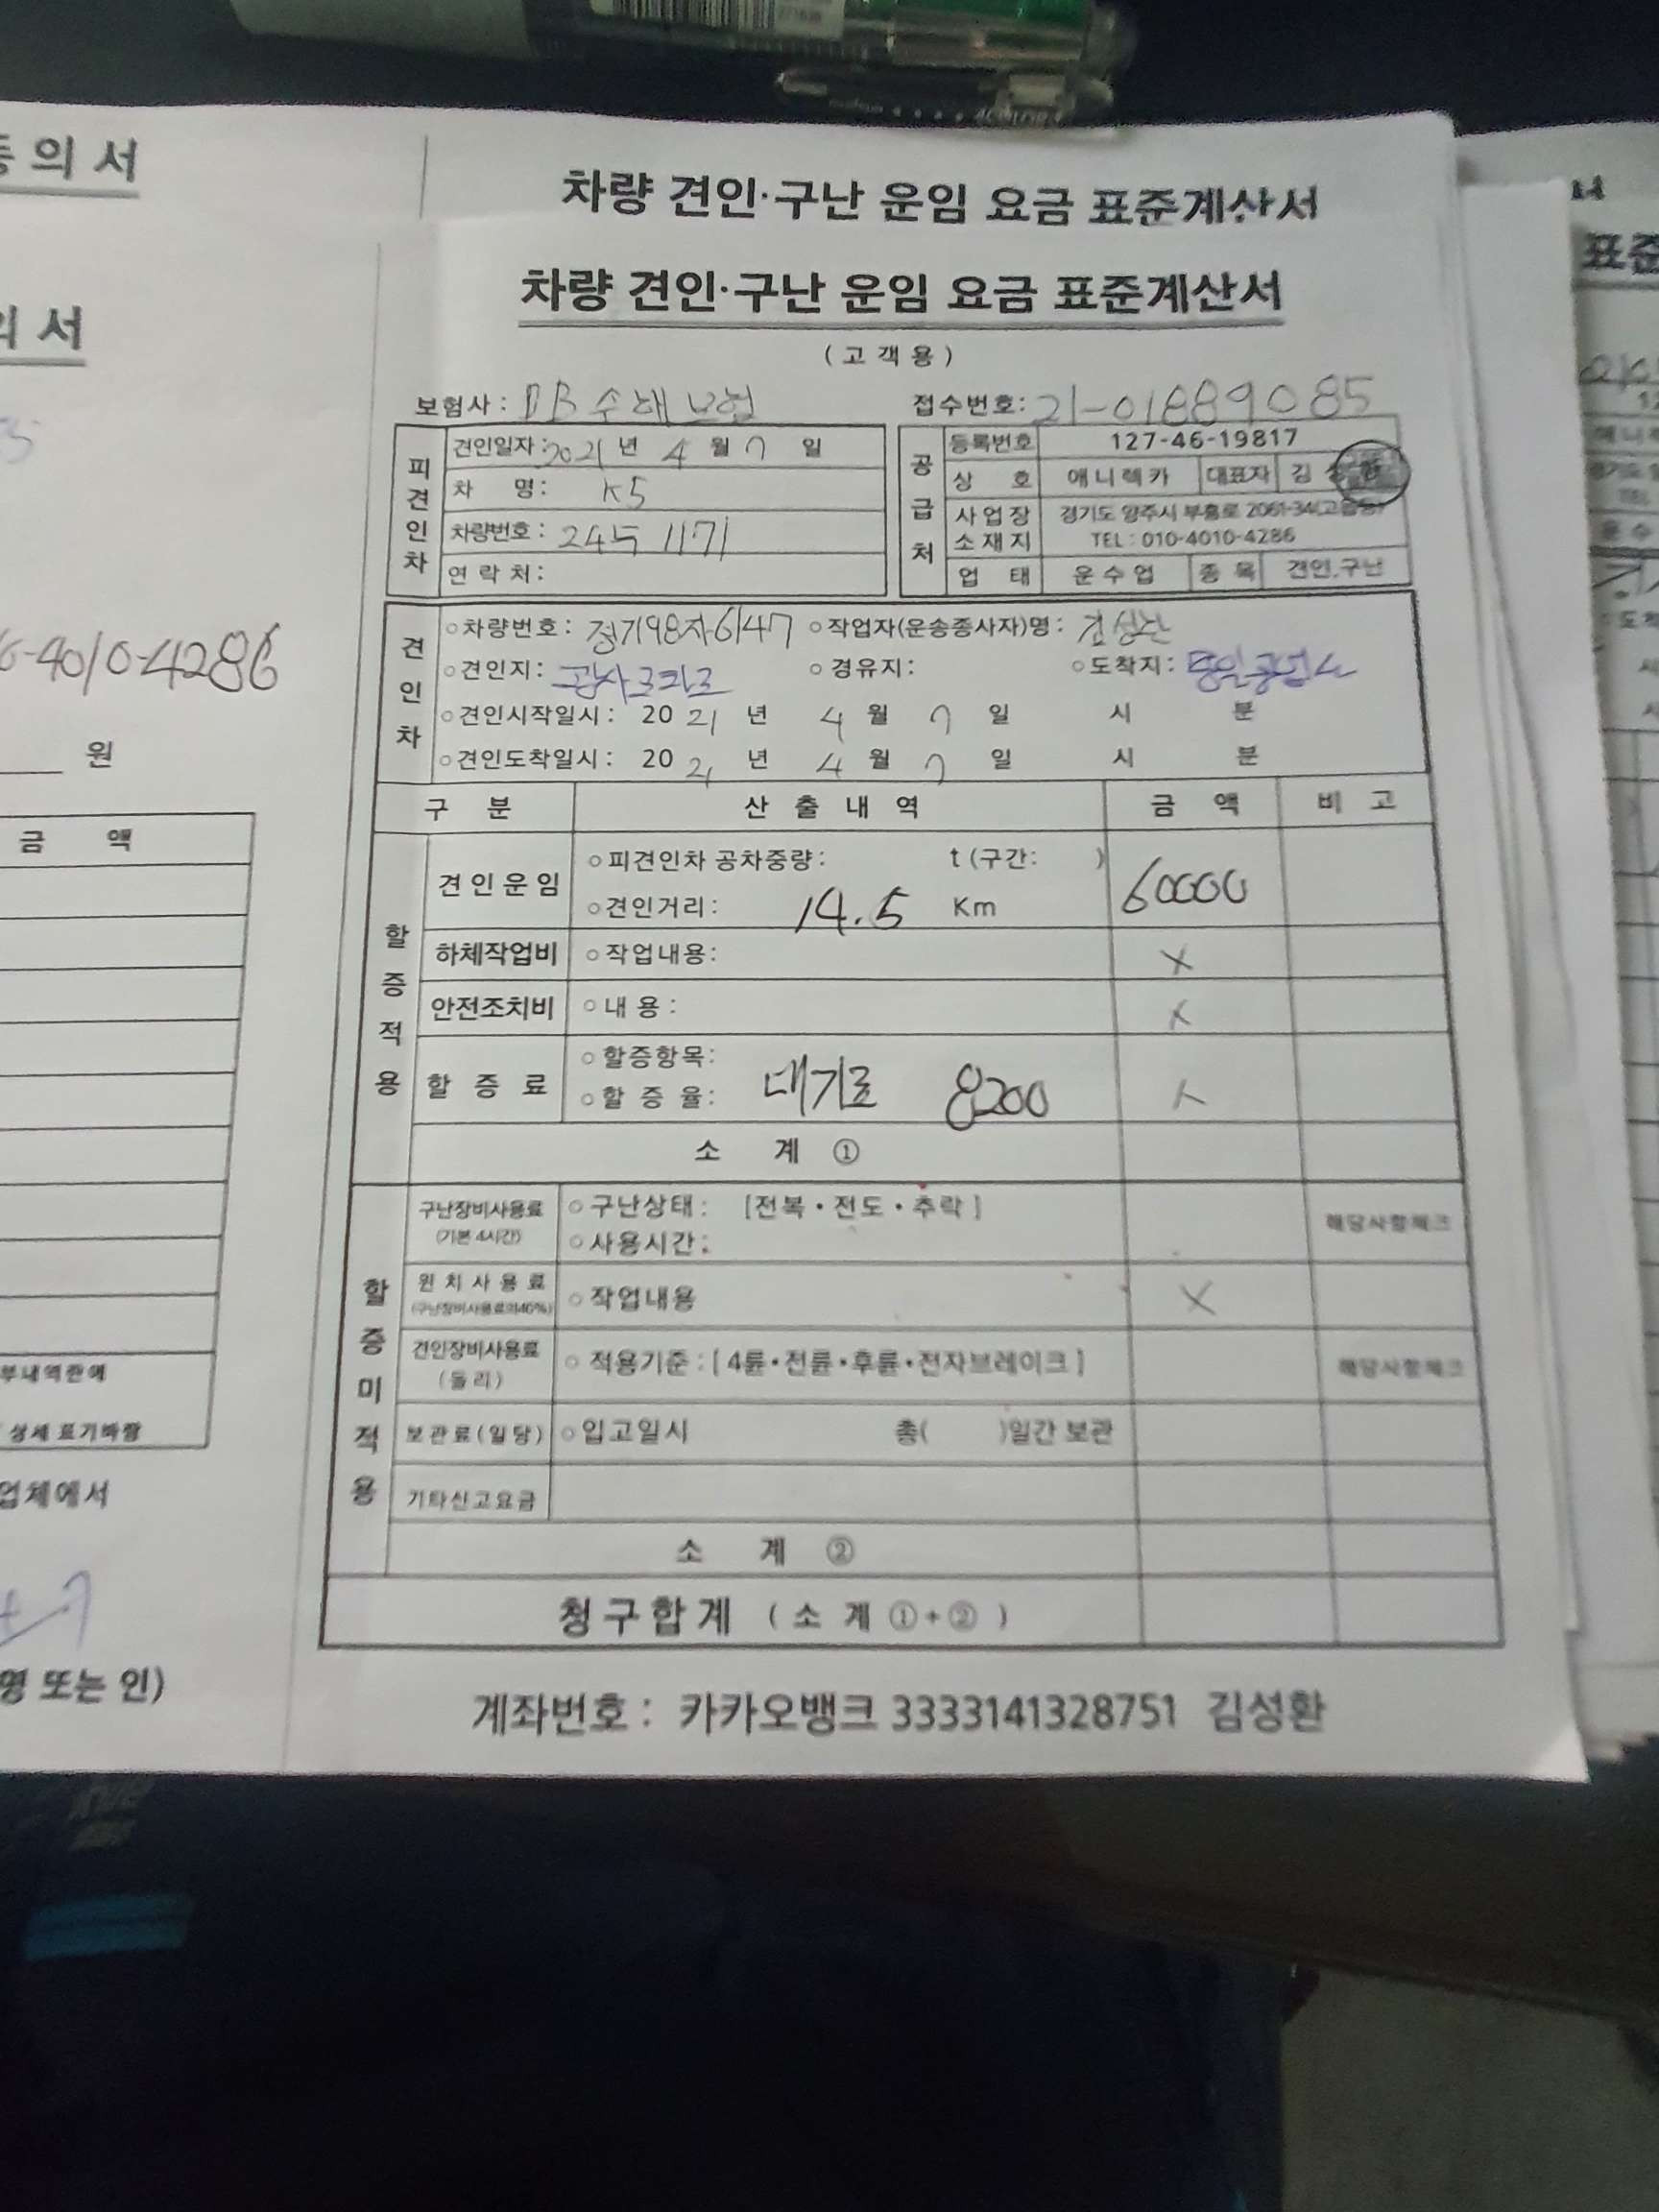 동 의 서
차량 견인·구난 운임 요금 표준계산서
의 서
차량 견인·구난 운임 요금 표준계산서
( 고 객 용 )
보험사 : DB 손해보험
접수번호: 21-01889085
피견인차
견인일자: 2021 년 4 월 7 일
차 명: K5
차량번호: 24누 1171
연 락 처 :
공급처
등록번호 127-46-19817
상 호 애니렉카 대표자 김
사업장 소재지 경기도 양주시 부흥로 2061-34(고읍동)
TEL : 010-4010-4286
업 태 운수업 종 목 견인.구난
견인차
○차량번호 : 경기98자6147 ○작업자(운송종사자)명 : 김성환
○견인지: ○경유지: ○도착지: 동일공업사
○견인시작일시 : 20 21 년 4 월 7 일 시 분
○견인도착일시 : 20 21 년 4 월 7 일 시 분
구 분 산 출 내 역 금 액 비 고
할증적용
견인운임 ○피견인차 공차중량 : t (구간: ) 60000
○견인거리 : 14.5 Km
하체작업비 ○작업내용: X
안전조치비 ○내 용 : X
할 증 료 ○할증항목:
○할 증 율: 대기료 8200
소 계 ①
할증미적용
구난장비사용료 (기본 4시간) ○구난상태 : [전복·전도·추락] 해당사항체크
○사용시간 :
윈치사용료 (구난장비사용료의40%) ○작업내용 X
견인장비사용료 (돌리) ○적용기준 : [4륜·전륜·후륜·전자브레이크] 해당사항체크
보관료(일당) ○입고일시 총( )일간 보관
기타신고요금
소 계 ②
청구합계 ( 소 계 ①+② )
계좌번호 : 카카오뱅크 3333141328751 김성환
-4010-4286
원
금 액
부내역란에
상세 표기바람
업체에서
명 또는 인)
표준